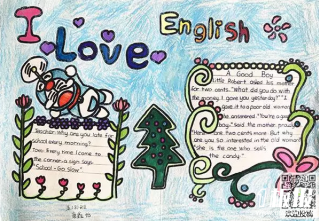 I Love English
Teacher: Why are you late for
school every morning?
Tom: Every time I come to
the corner, a sign says,
"School - Go Slow".
A Good Boy
Little Robert asked his mother
for two cents. "What did you do with
the money I gave you yesterday?"
"I gave it to a poor old woman,"
he answered. "You're a good
boy," said the mother proudly.
"Here are two cents more. But why
are you so interested in the old woman?"
"She is the one who sells
the candy."